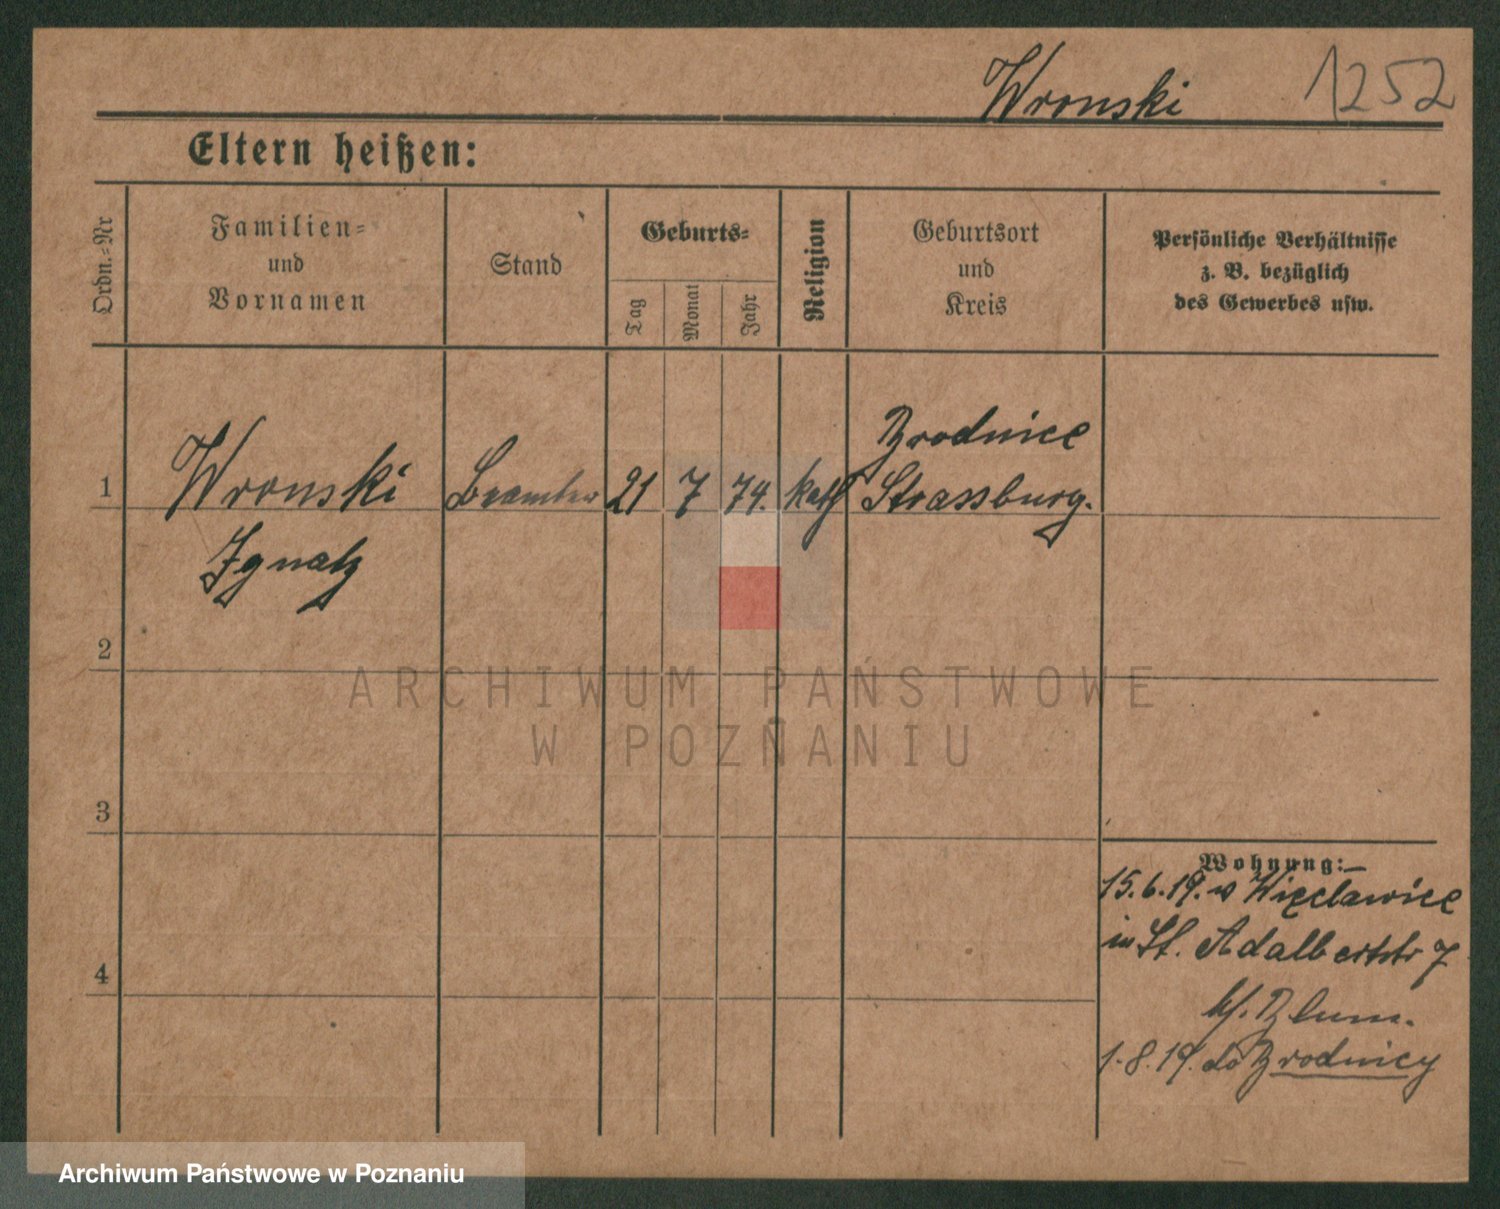 Wronski 1252
Eltern heißen:
Ordn.-Nr
Familien-
und
Vornamen
Stand
Geburts-
Tag
Monat
Jahr
Religion
Geburtsort
und
Kreis
Persönliche Verhältnisse
z. B. bezüglich
des Gewerbes usw.
Brodnice
1 Wronski Beamter 21 7 74. kath Strassburg.
Ignatz
2
ARCHIWUM PAŃSTWOWE
W POZNANIU
3
Wohnung:
15.6.19. Więclawice
in St. Adalbertstr 7
Blum.
1.8.19. do Brodnicy
4
Archiwum Państwowe w Poznaniu